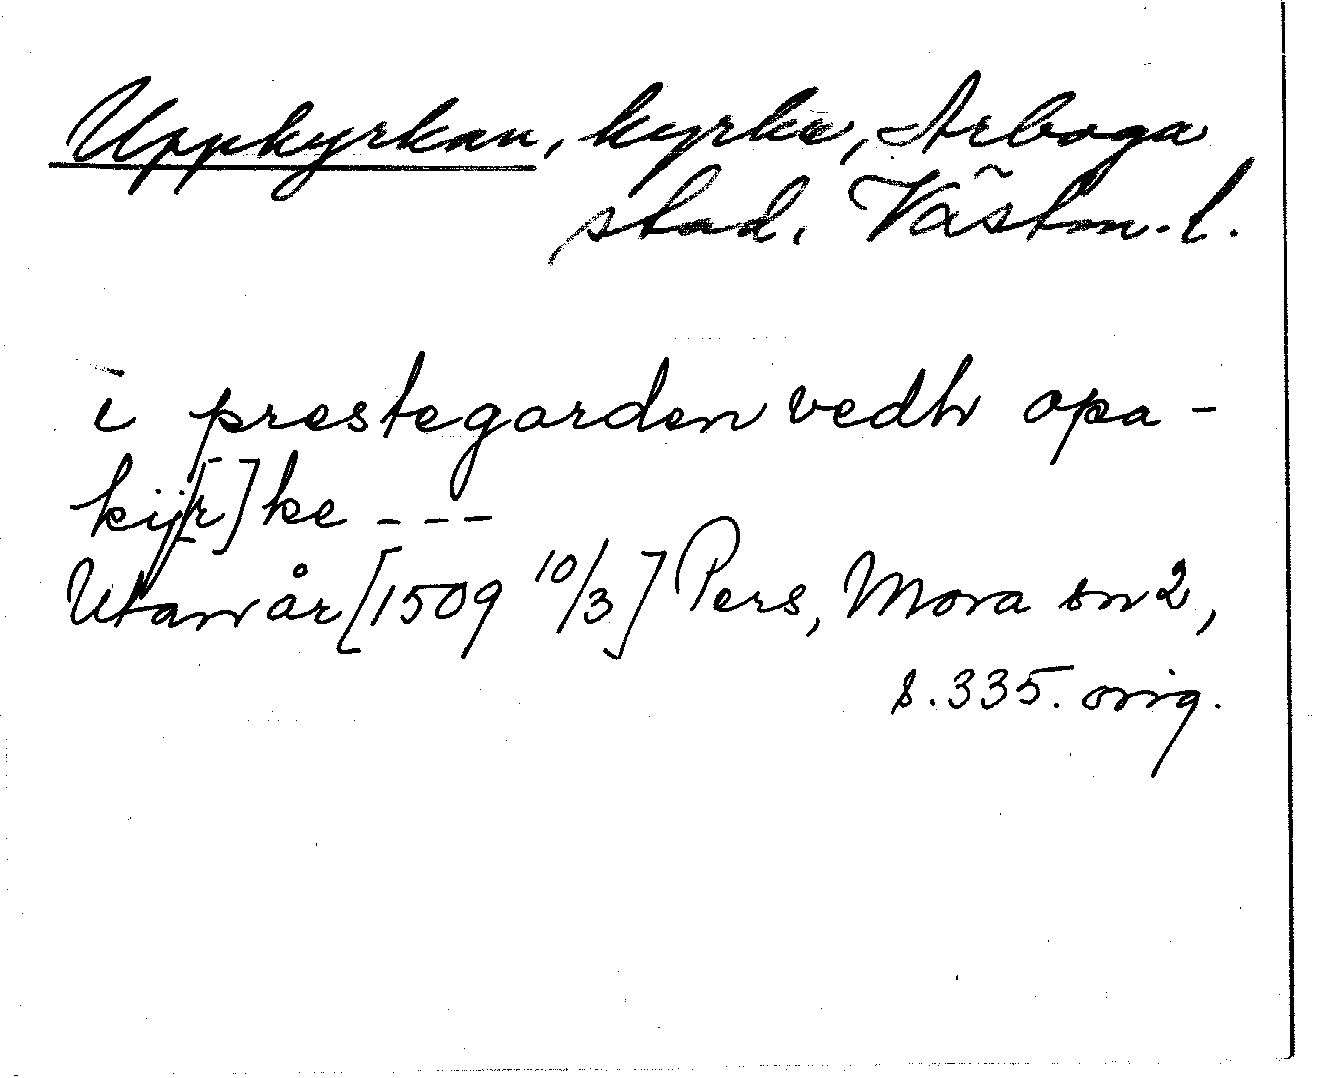 Uppkyrkan, kyrka, Arboga
stad. Västm. l.
i prestegarden vedh opa-
kij[r]ke ---
Utan år [1509 10/3] Pers, Mora sn 2,
s. 335. orig.